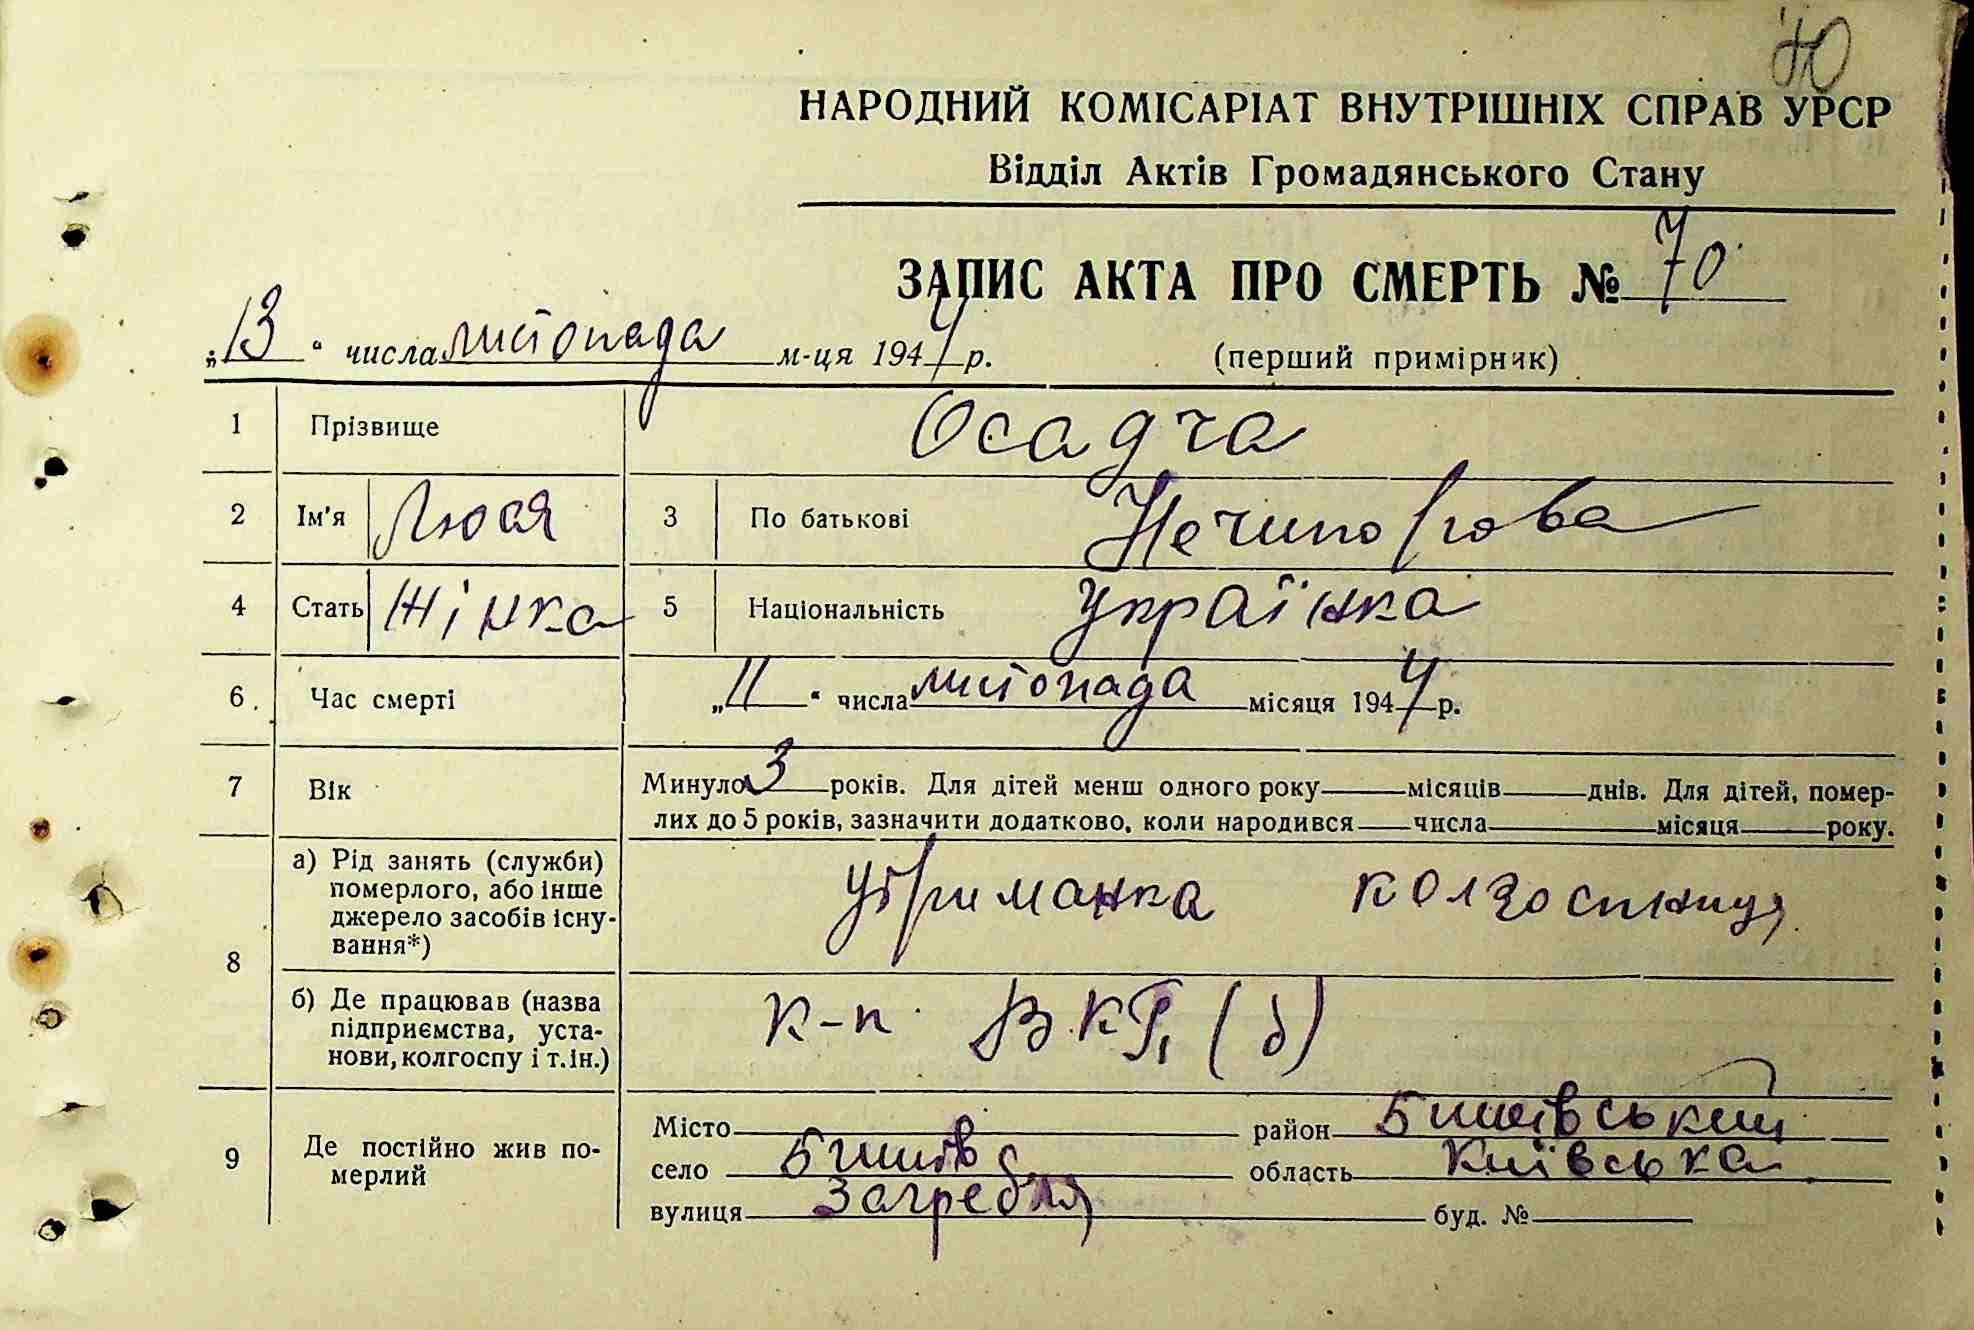 70
НАРОДНИЙ КОМІСАРІАТ ВНУТРІШНІХ СПРАВ УРСР
Відділ Актів Громадянського Стану
ЗАПИС АКТА ПРО СМЕРТЬ № 70
„13“ числа листопада м-ця 1944 р. (перший примірник)
1 Прізвище Осадча
2 Ім'я Люся 3 По батькові Нечипорова
4 Стать Жінка 5 Національність Українка
6. Час смерті „11“ числа листопада місяця 1944 р.
7 Вік Минуло 3 років. Для дітей менш одного року — місяців — днів. Для дітей, помер-
лих до 5 років, зазначити додатково, коли народився — числа — місяця — року.
8 а) Рід занять (служби) померлого, або інше джерело засобів існу-вання*) утриманка колгоспниця
б) Де працював (назва підприємства, уста-нови, колгоспу і т.ін.) к-п ВКП(б)
9 Де постійно жив по-мерлий Місто — район Бишівський
село Бишів область Київська
вулиця Загребля буд. №